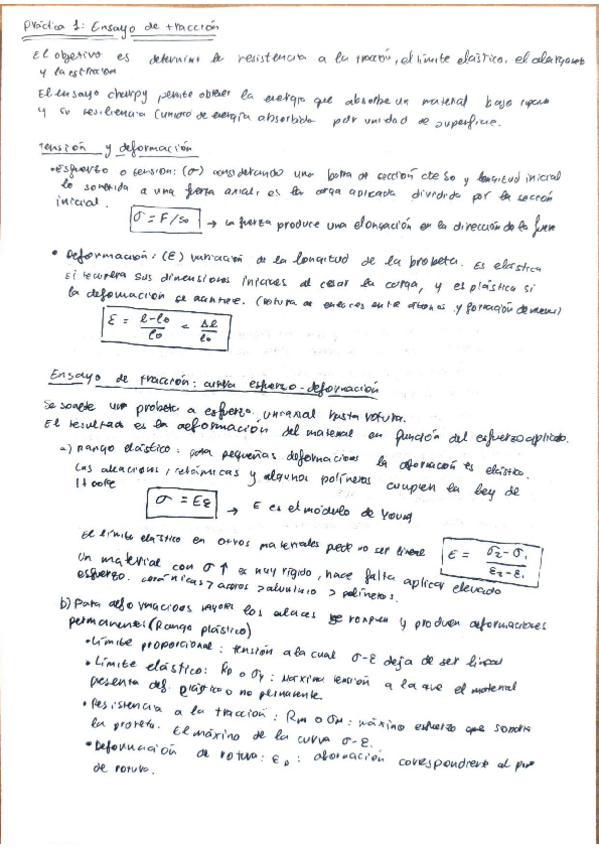 Práctica 1: Ensayo de tracción
El objetivo es determinar la resistencia a la tracción, el límite elástico, el alargamiento
y la estricción
El ensayo charpy permite obtener la energía que absorbe un material bajo
y su resiliencia (cantidad de energía absorbida por unidad de superficie.
Tensión y deformación
• Esfuerzo o tensión: (σ) considerando una barra de sección cte So y longitud inicial
lo sometida a una fuerza axial, es la carga aplicada dividida por la sección
inicial.
σ = F/So → La fuerza produce una elongación en la dirección de la fuerza
• Deformación: (ε) variación de la longitud de la probeta. Es elástica
si recupera sus dimensiones iniciales al cesar la carga, y es plástica si
la deformación se mantiene. (rotura de enlaces entre átomos y formación de nuevos)
ε = l-lo/lo = Δl/lo
Ensayo de tracción: curva esfuerzo-deformación
Se somete una probeta a esfuerzo uniaxial hasta rotura.
El resultado es la deformación del material en función del esfuerzo aplicado.
a) Rango elástico: para pequeñas deformaciones la deformación es elástica.
Las aleaciones, cerámicas y algunos polímeros cumplen la ley de
Hooke
σ = Eε → E es el módulo de Young
El límite elástico en otros materiales puede no ser lineal E = σ2-σ1/ε2-ε1
Un material con σ↑ es muy rígido, hace falta aplicar elevado
esfuerzo. cerámicas > aceros > aluminio > polímeros.
b) Para deformaciones mayores los enlaces se rompen y producen deformaciones
permanentes (Rango plástico)
• Límite proporcional: tensión a la cual σ-ε deja de ser lineal
• Límite elástico: Rp o σy: Máxima tensión a la que el material
presenta def. plástica o no permanente.
• Resistencia a la tracción: Rm o σM: máximo esfuerzo que soporta
la probeta. El máximo de la curva σ-ε.
• Deformación de rotura: : deformación correspondiente al
de rotura.